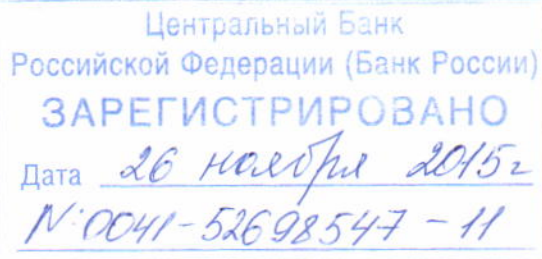 Центральный Банк
Российской Федерации (Банк России)
ЗАРЕГИСТРИРОВАНО
Дата 26 ноября 2015г
N:0041-52698547-11